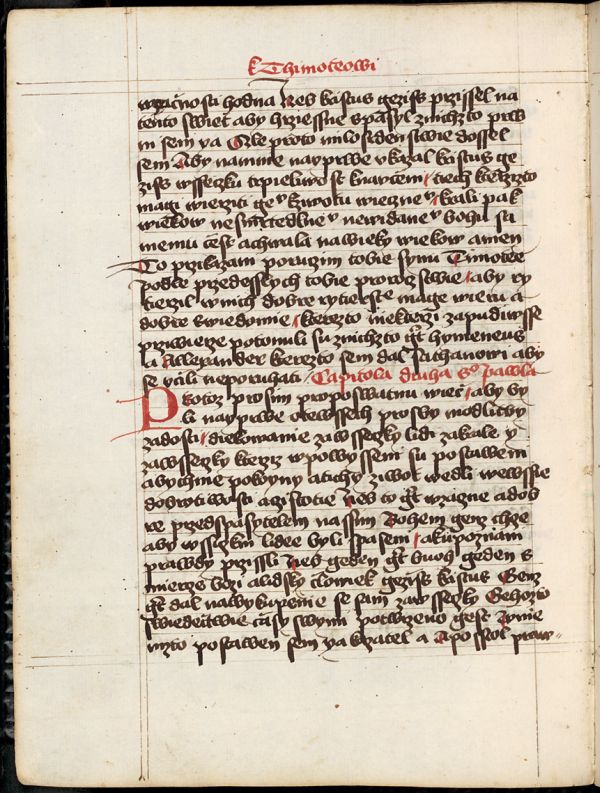 k Thimoteowi
wzacnosti hodna Neb kristus gezifs przissel na
tento swiet aby hrziessne spasyl znichzto prw
ni sem ya Ozle proto milosrdenstwie dossel
sem Aby namnie nayprwe vkazal kristus ge
zifs wsseczku trpeliwost knaucem tiech kterzizto
magi wierziti geu kziwotu wiecznes krali pak
wiekow nesmrtedlnes newidanes bohu sa
memu cest achwala nawieky wiekow amen
To przikazani poruczim tobie synu Timotee
podle przedesslych tobie proroczstwie aby ry
tierzil wnich dobre rytierstwie mage wieru a
dobre swiedomie kterezto niekterzi zapudiwsse
przi wierze potonuli su znichzto gt hymeneus
a Allexander kterezto sem dal sathanowi aby
se vcili neporuhati Capitola druha s pawla
Protoz prosim proposwatnu wiec aby by
li nayprwe otewssech prosby modlitby
zadosti diekowanie zawsseczky lidi zakrale y
zawsseczky kterziz wpowysseni su postaweni
abychme pokoyny atichy ziwot wedli wewssie
dobrotiwosti aczistotie Neb to gt wzacne adob
re przedspasytelem nassim Bohem genz chce
aby wssiczkni lidee byli spaseni akupoznani
prawdy przissli Neb geden gt buoh geden s
mierzce bozi alidsky czlowiek gezifs kristus Genz
gt dal nawykupenie se sam zawsseczky Gehozto
swiedectwie czasy swymi potwrzeno gest Wnie
mzto postawen sem ya kazatel a Aposstol praw-